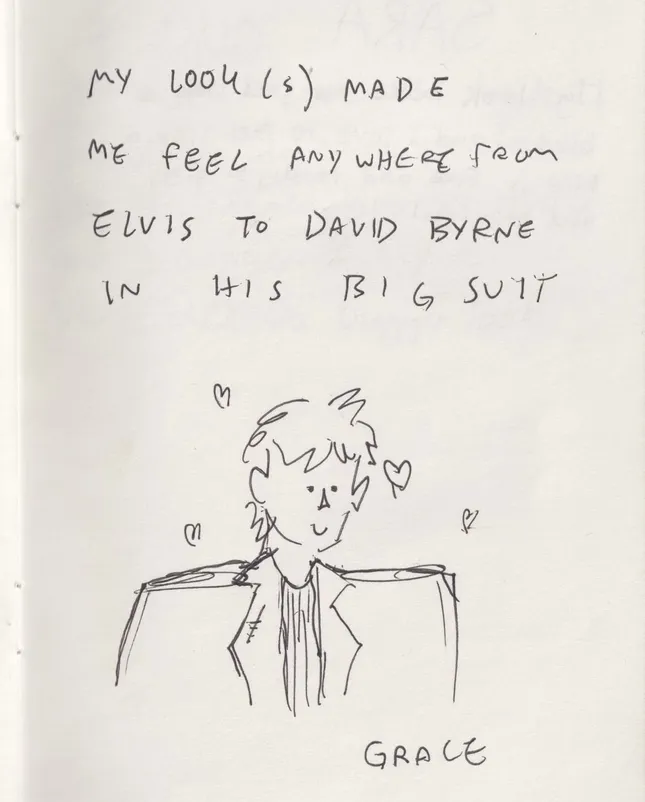 MY LOOK(S) MADE
ME FEEL ANYWHERE FROM
ELVIS TO DAVID BYRNE
IN HIS BIG SUIT
GRACE